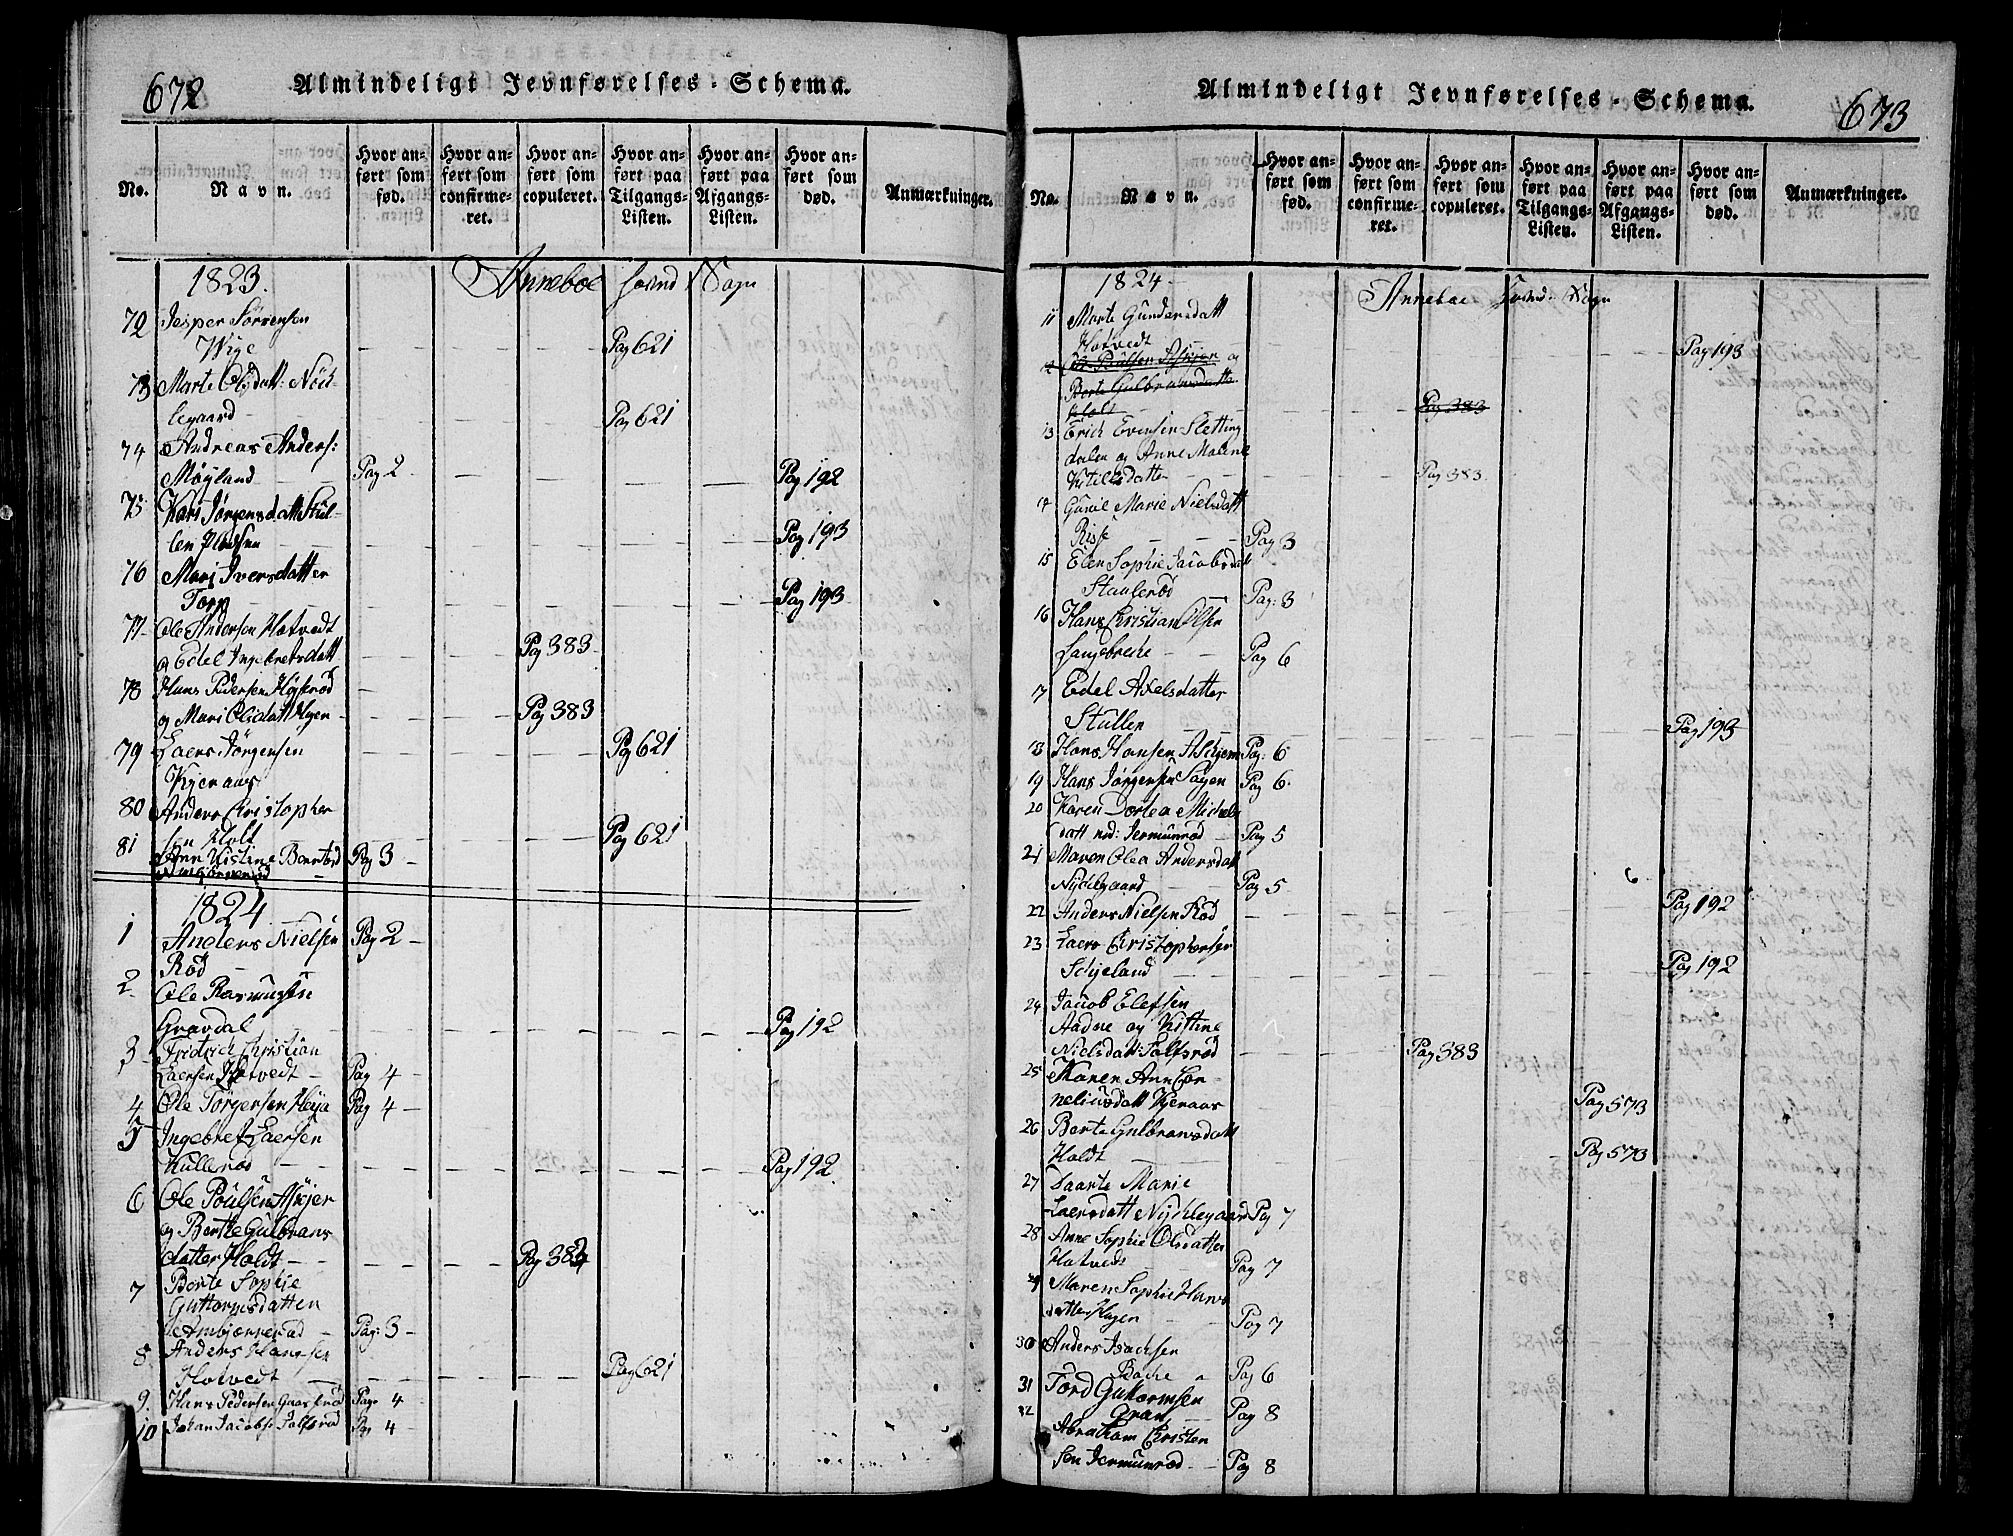 672
Almindeligt Jevnførelses-Schema.
No. Navn. Hvor anført som fød. Hvor anført som confirmeret. Hvor anført som copuleret. Hvor anført paa Tilgangs-Listen. Hvor anført paa Afgangs-Listen. Hvor anført som død. Anmærkninger.
1823. Anneboe Sogn
72 Jesper Sörrensen
Wige Pag 621
73 Marte Olsdatt: Nöch-
legaard Pag 621
74 Andreas Anders:
Möyland Pag 2 Pag 192
75 Kari Jörgensdatt Stul-
len Pladsen Pag 193
76 Mari Iversdatter
Torp Pag 193
77 Ole Andersen Hotvedt
og Edel Ingebretsdatt Pag 383
78 Hans Pedersen Höjsröd
og Mari Olsdatt Hyen Pag 383
79 Laers Jörgensen Pag 621
Kjeraas
80 Anders Christopher
sen Holt Pag 621
81 Ann Kistine Berntsd Pag 3
1824
1 Anders Nielsen Pag 2
Röd
2. Ole Rasmusen
Gravdal Pag 192
3 Fridrich Christian
Laersen Hotvedt Pag 4
4 Ole Törgersen Heja Pag 4
5 Ingebret Laersen
Kulleröd Pag 192.
6 Ole Poulsen Askjer
og Berthe Gulbrans
datter Holdt Pag 382
7 Berte Sophie
Guttormsdatten
Ambjönneröd Pag: 3
8 Anders Hansen
Hotvedt Pag 621
9. Hans Pedersen Gaaseröd Pag 4
10 Johan Jacobse Solfsröd Pag 4
Almindeligt Jevnførelses-Schema. 673
No. Navn. Hvor anført som fød. Hvor anført som confirmeret. Hvor anført som copuleret. Hvor anført paa Tilgangs-Listen. Hvor anført paa Afgangs-Listen. Hvor anført som død. Anmærkninger.
1824 Annebae Sogn
11 Marte Gundersdatt
Hotvedt Pag 193
12 Ole Poulsen Askjer og
Berte Gulbransdatte
Holt Pag 383
13 Erich Evensen Sletting
dalen og Anne Malene
Ketilsdatter Pag 383.
14 Guril Marie Nielsdatt
Rise Pag 3
15 Elen Sophie Jacobsdatt
Stauleröd Pag: 3
16 Hans Christian Olsen
Langebreche Pag 6
17 Edel Axelsdatter
Stullen Pag 193
18 Hans Hansen Askjem Pag: 6
19 Hans Jörgensen Solgen Pag 6.
20 Karen Dortea Michels
datt ned: Jermunröd Pag 5
21 Maren Olea Andersdatt
Nychlegaard Pag 5
22 Anders Nielsen Röd Pag 192
23 Laers Christophersen
Schjeland Pag 192
24 Jacob Elefsen
Aadne og Kistine
Nielsdatt: Solfsröd Pag 383
25 Maren Ann Cor-
neliusdatt Kjeraas Pag 573
26 Berte Gulbransdatt
Holdt Pag 573
27 Daarte Marie
Laersdatt Nychlegaard Pag 7
28 Anne Sophie Olsdatter
Hotvedt Pag 7
29 Maren Sophie Hans
datter Hagen Pag 7
30 Anders Isachsen
Bache Pag 6
31 Tord Guttormsen
Gran Pag 8
32 Abraham Christen
sen Jermunröd Pag 8